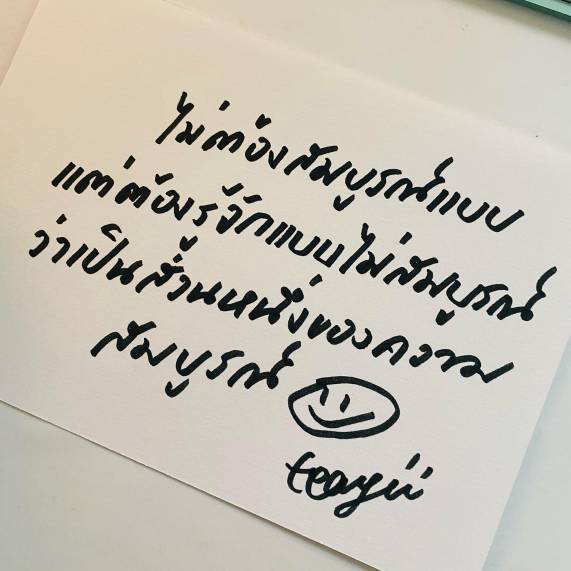 ไม่ต้องสมบูรณ์แบบ
แต่ต้องรู้จักแบบไม่สมบูรณ์
ว่าเป็นส่วนหนึ่งของความ
สมบูรณ์